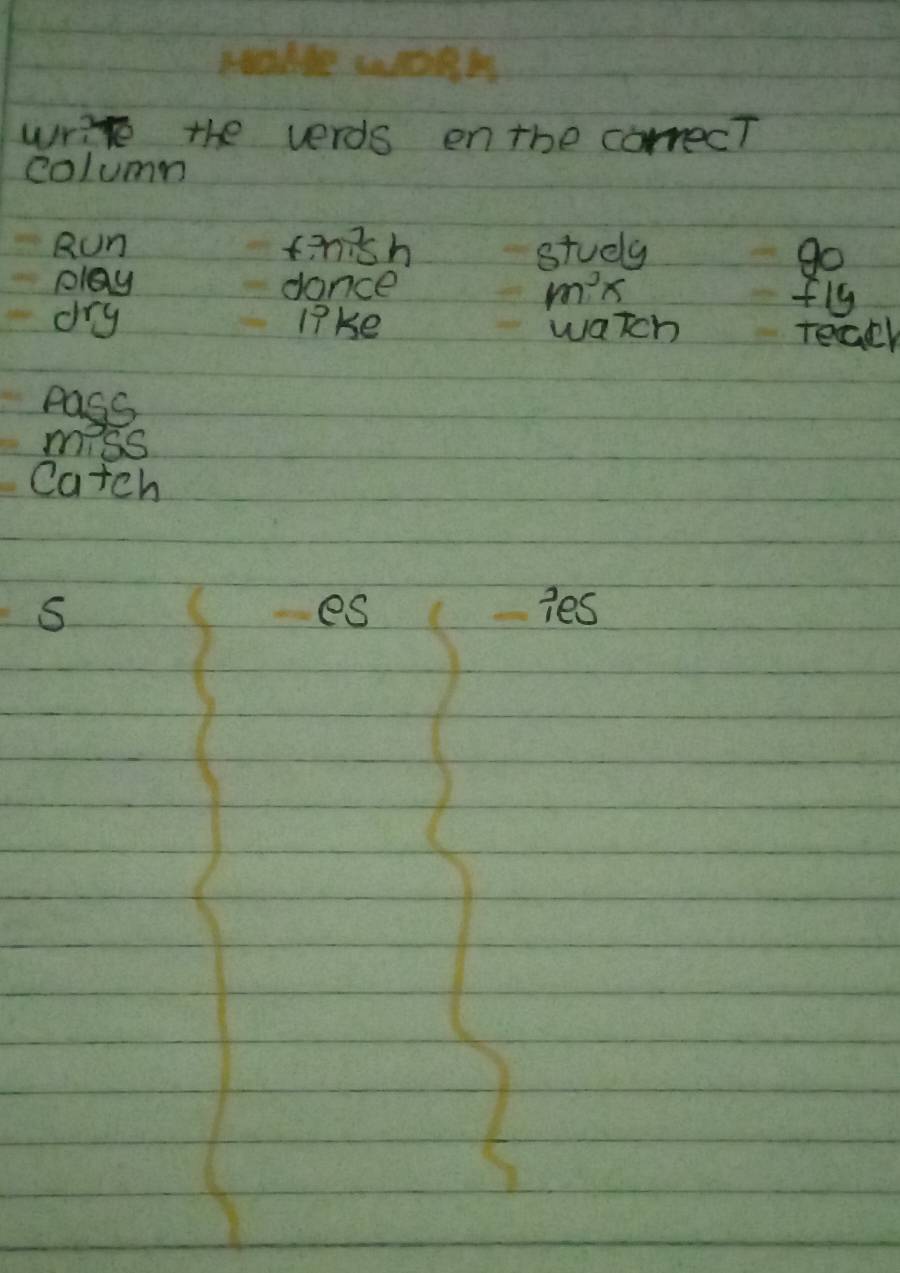 HOME WORK
write the verds en the correcT
column
- Run - finish - study - go
- play - dance - mix - fly
- dry - like - waTch - Teach
- Pass
- miss
- Catch
- s - es - ies